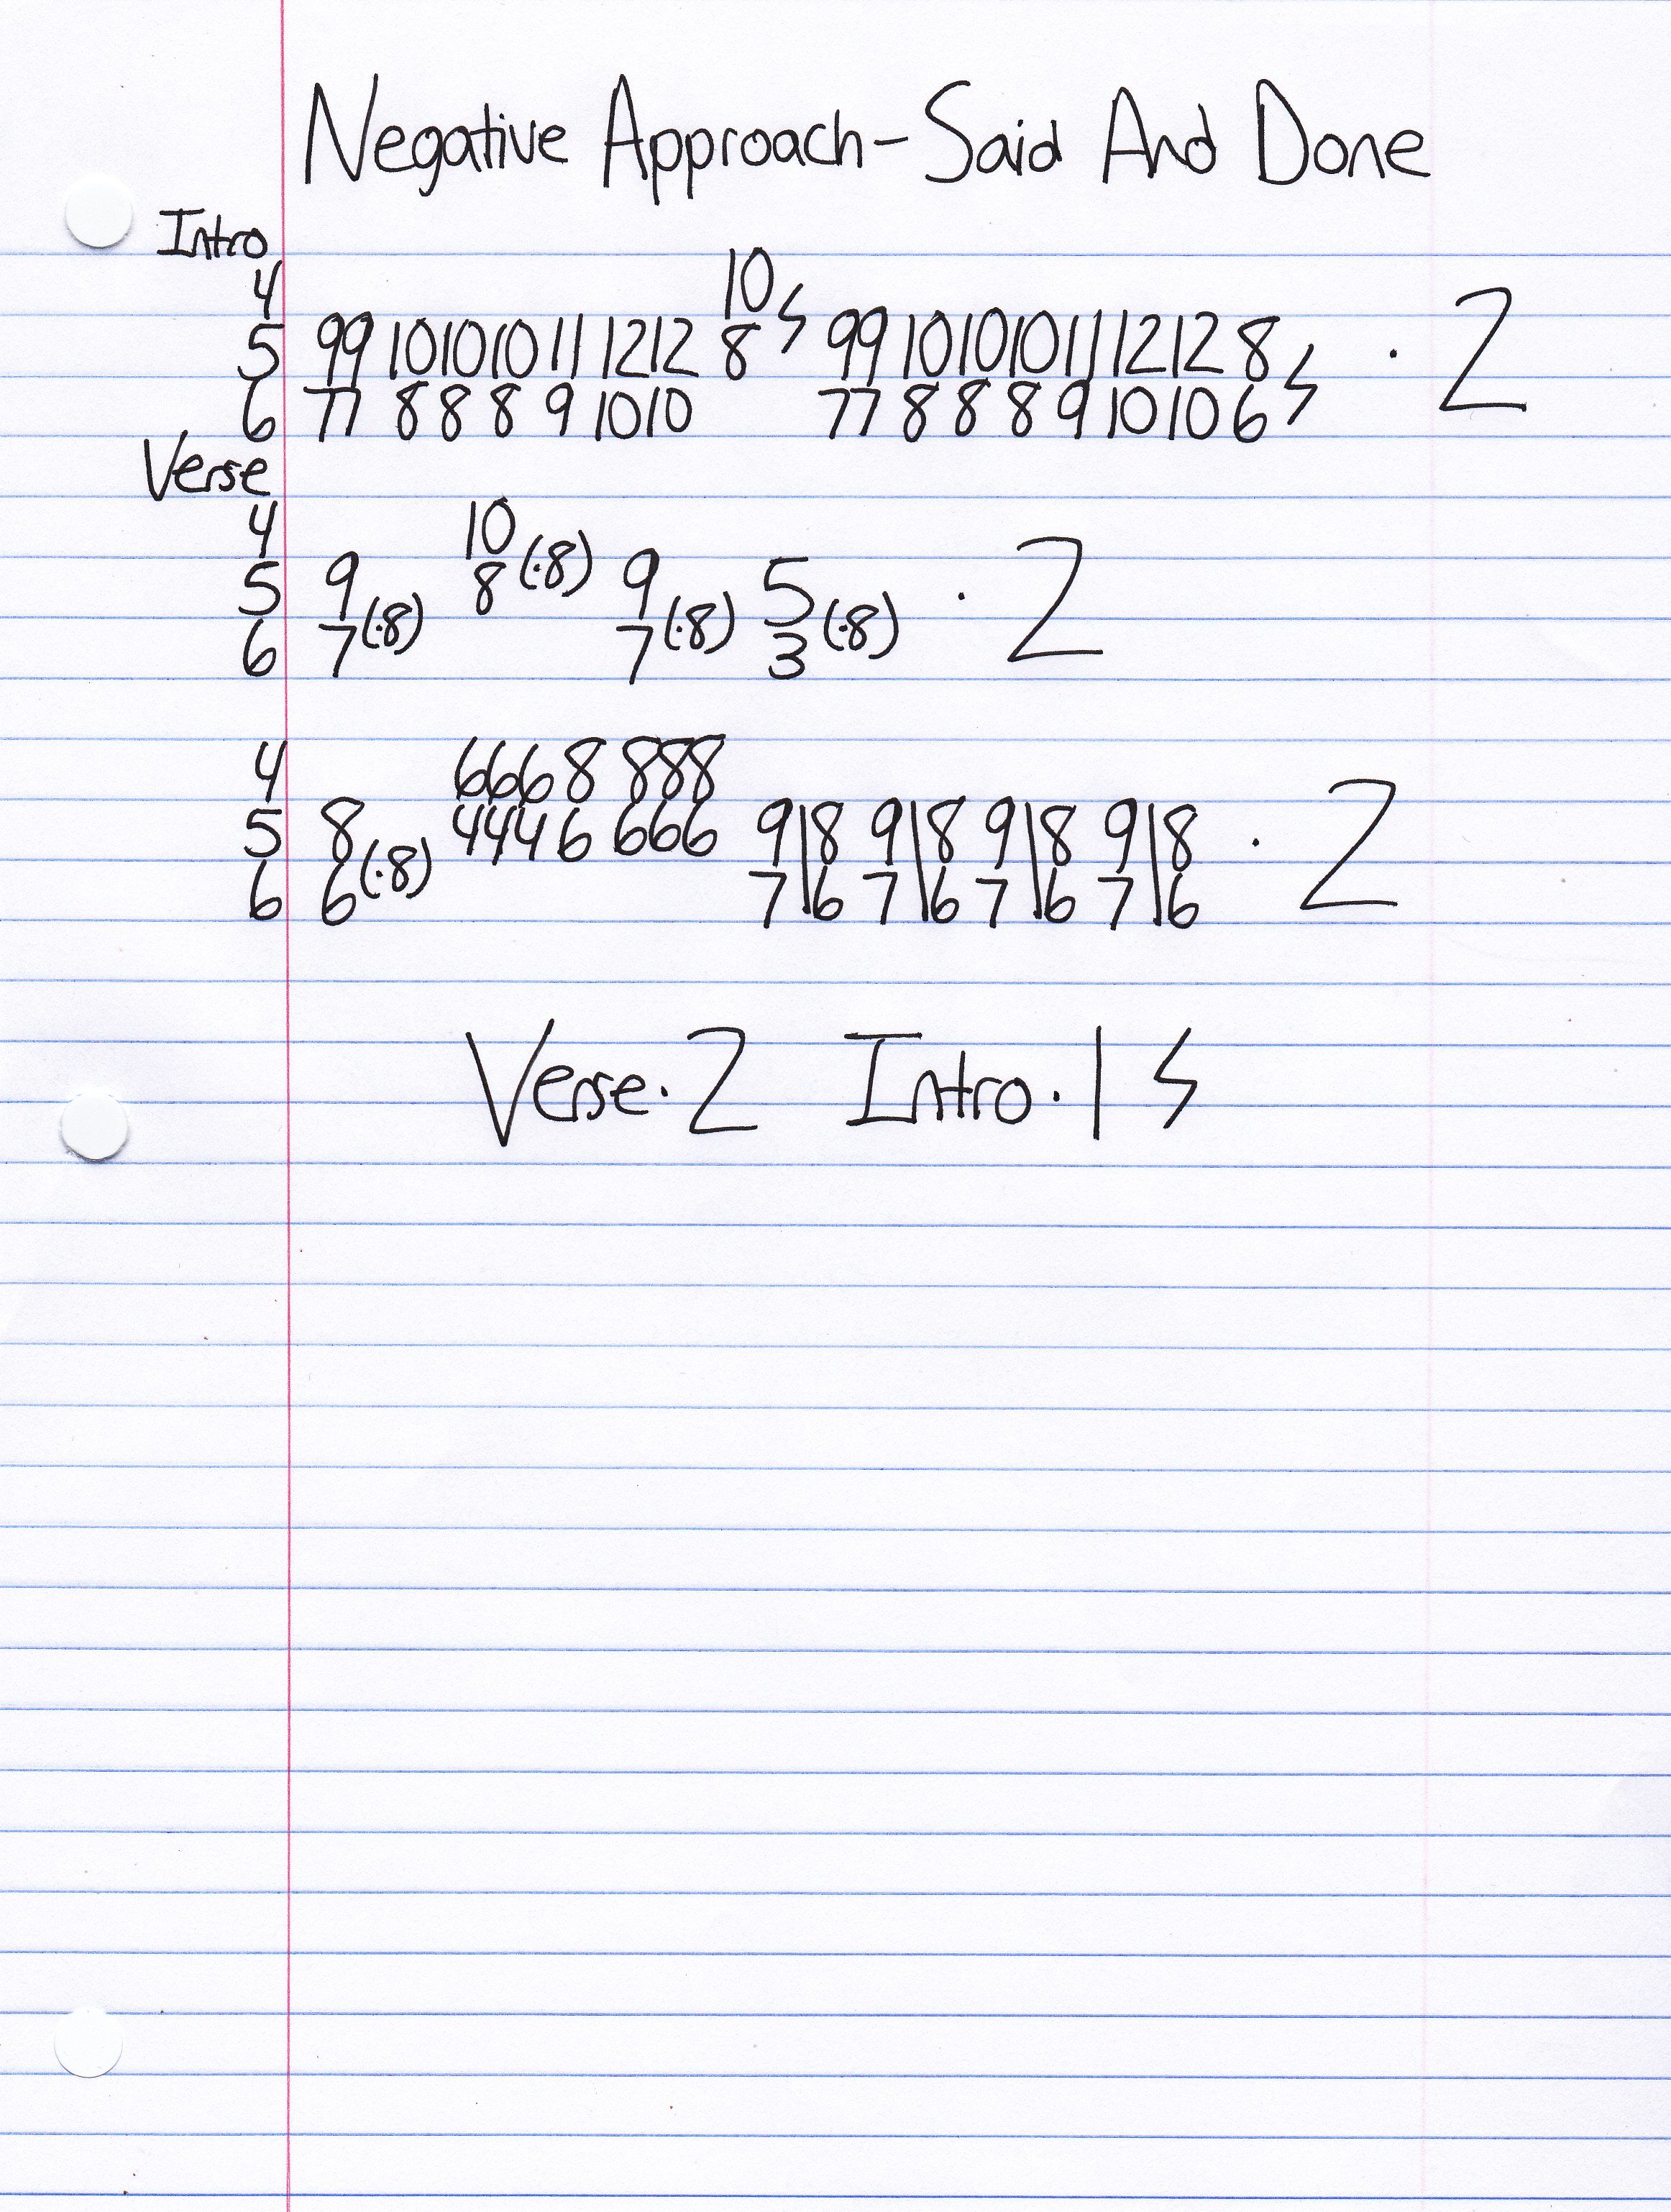 Negative Approach - Said And Done
Intro
4 10
5 99 10 10 10 11 12 12 8 99 10 10 10 11 12 12 8 · 2
6 77 8 8 8 9 10 10 77 8 8 8 9 10 10 6
Verse
4 10
5 9 8 (·8) 9 5 · 2
6 7 (·8) 7 (·8) 3 (·8)
4 666 8 888
5 8 444 6 666 9|8 9|8 9|8 9|8 · 2
6 6 (·8) 7|6 7|6 7|6 7|6
Verse · 2 Intro · 1